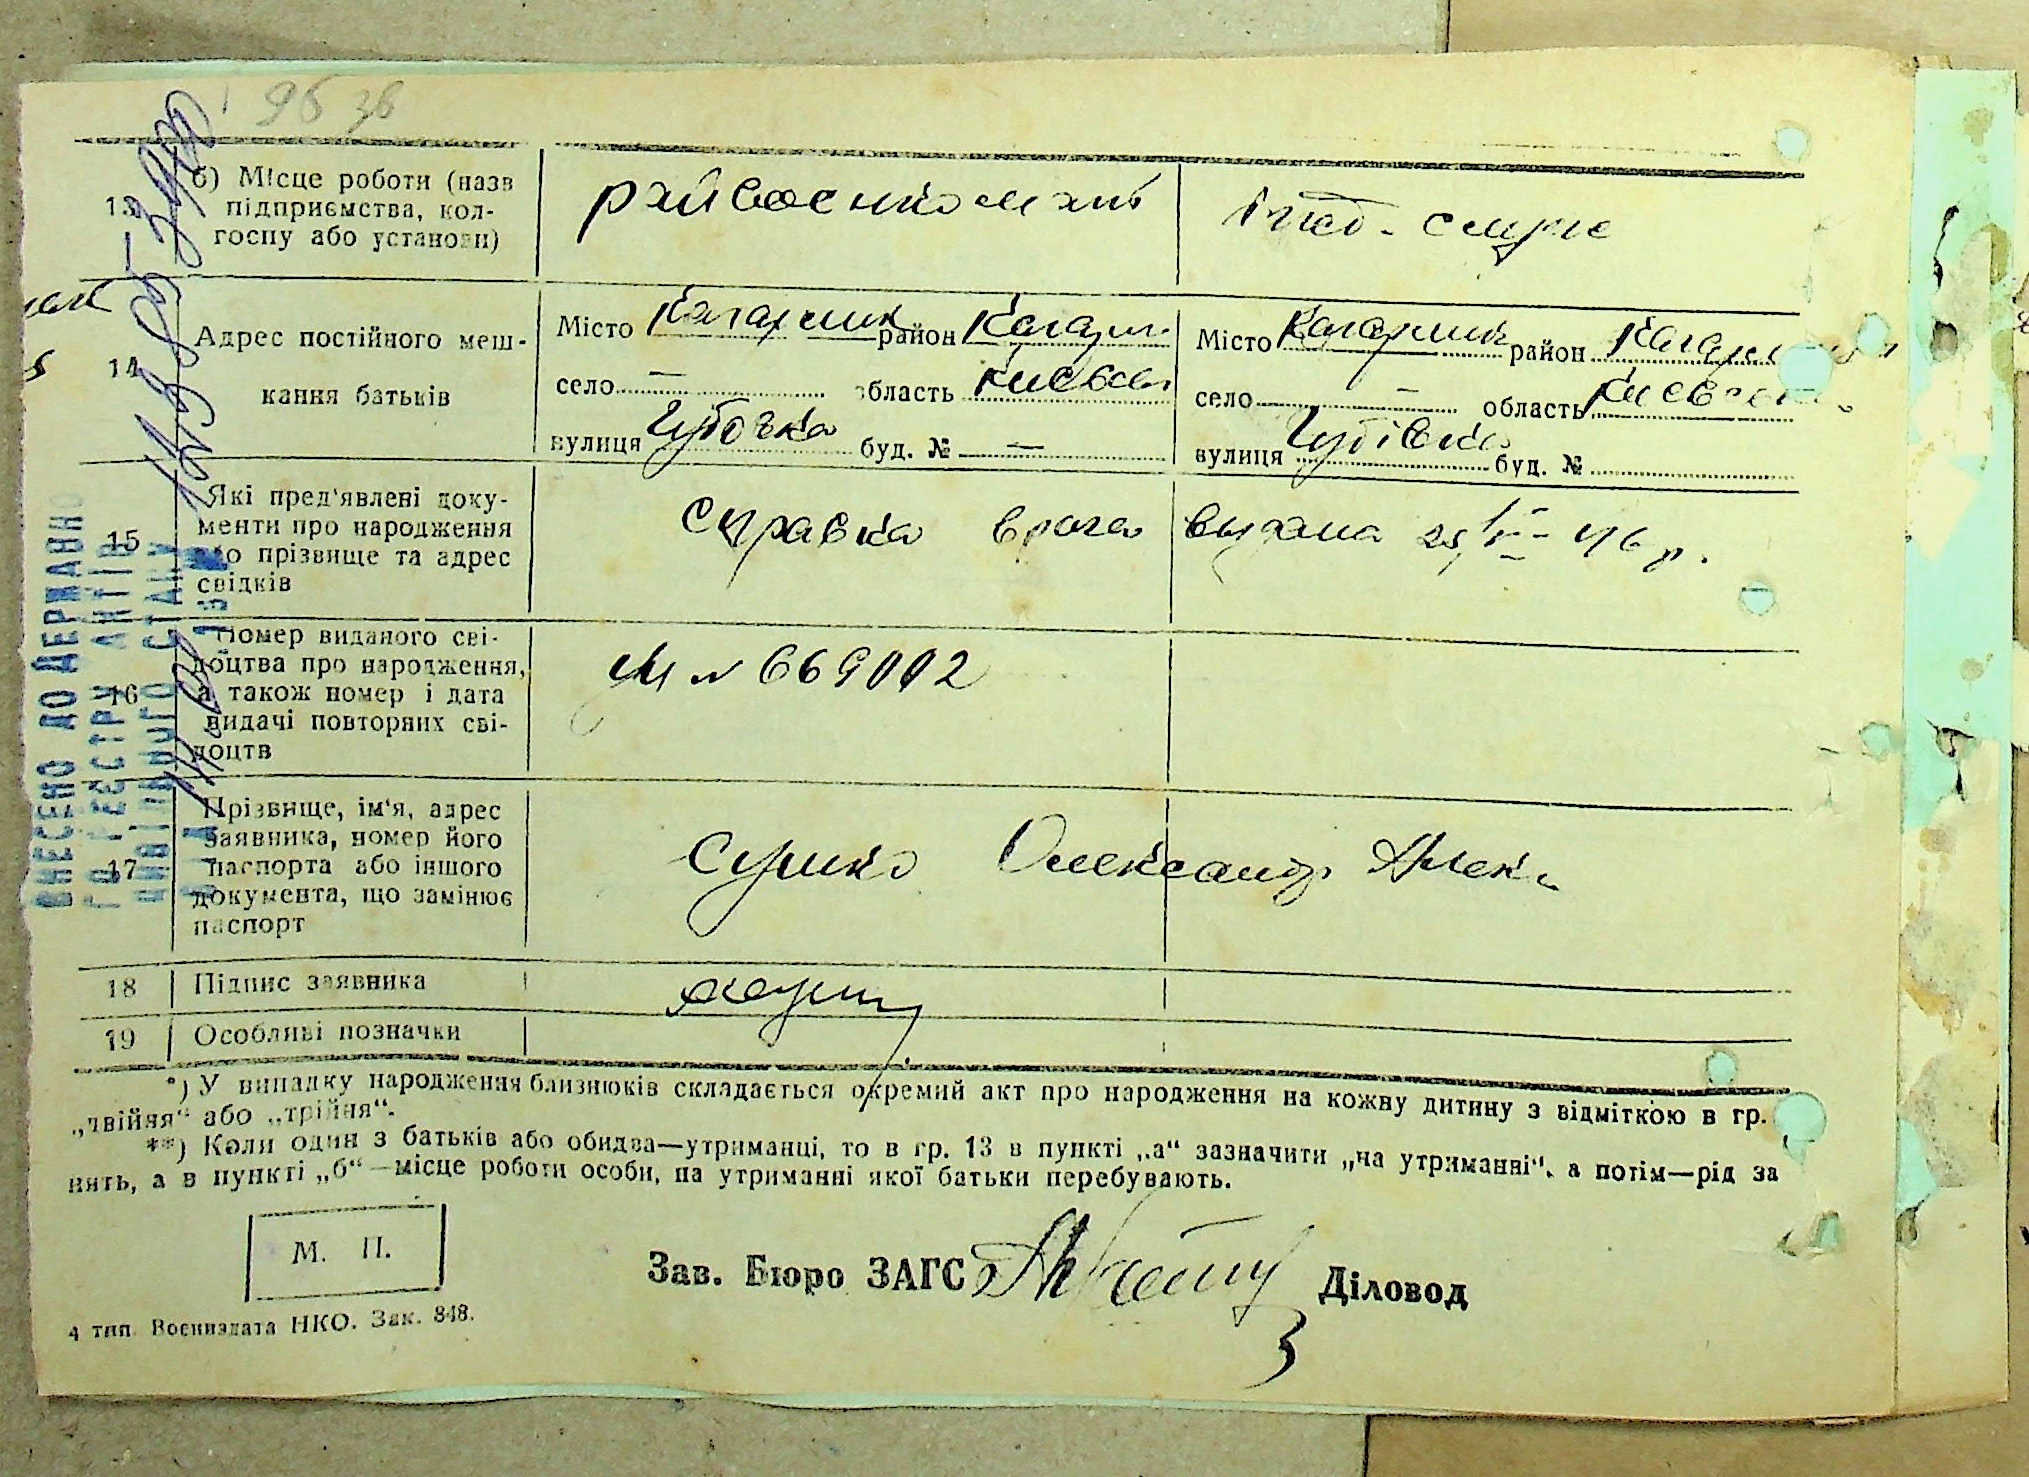 96 зв
13
б) Місце роботи (назв
підприємства, кол-
госпу або установи)
райвоєнкомат
14
Адрес постійного меш-
кання батьків
Місто Кагарлик район Кагарл.
село — область Киевская
вулиця буд. № —
Місто Кагарлик район Кагарл
село — область Киевск
вулиця буд. №
15
Які пред'явлені доку-
менти про народження
або прізвище та адрес
свідків
Справка врача выдана 46 р.
16
Номер виданого сві-
доцтва про народження,
а також номер і дата
видачі повторних сві-
доцтв
669002
17
Прізвище, ім'я, адрес
заявника, номер його
паспорта або іншого
документа, що замінює
паспорт
Олександр Алек.
18 Підпис заявника
19 Особливі позначки
ВНЕСЕНО ДО ДЕРЖАВНО
ГО РЕЄСТРУ АКТІВ
ЦИВІЛЬНОГО СТАНУ
*) У випадку народження близнюків складається окремий акт про народження на кожну дитину з відміткою в гр.
„двійня“ або „трійня“.
**) Коли один з батьків або обидва—утриманці, то в гр. 13 в пункті „а“ зазначити „на утриманні“, а потім—рід за
нять, а в пункті „б“—місце роботи особи, на утриманні якої батьки перебувають.
М. П.
Зав. Бюро ЗАГС Діловод
4 тип. Воениздата НКО. Зак. 848.